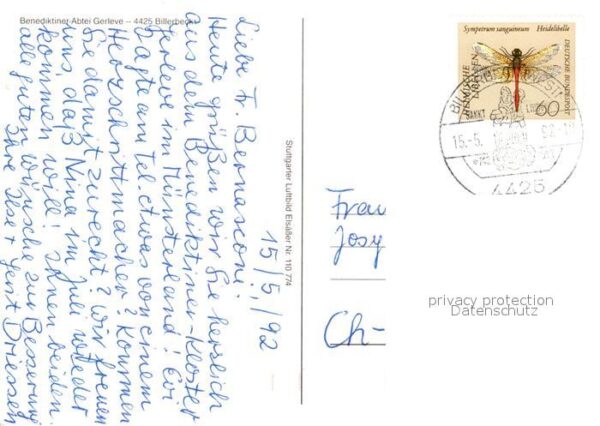 Benediktiner Abtei Gerleve – 4425 Billerbeck
15/5./92
Liebe Fr. Bernasconi!
Heute grüßen wir Sie herzlich
aus dem Benediktiner-Kloster
Gerleve im Münsterland! Evi
sagte am Tel. etwas von einem
Herzschrittmacher? Kommen
Sie damit zurecht? Wir freuen
uns, daß Nina im Juli wieder
kommen will! Ihnen beiden
alle guten Wünsche zur Besserung
Ihre Ilse + Gent Driessen
Stuttgarter Luftbild Elsäßer Nr. 110 774
Sympetrum sanguineum Heidelibelle
HEIMISCHE LIBELLEN
DEUTSCHE BUNDESPOST
60
BILLERBECK
SANKT
15.-5. 92
4425
Frau
Josy
Ch-
privacy protection
Datenschutz